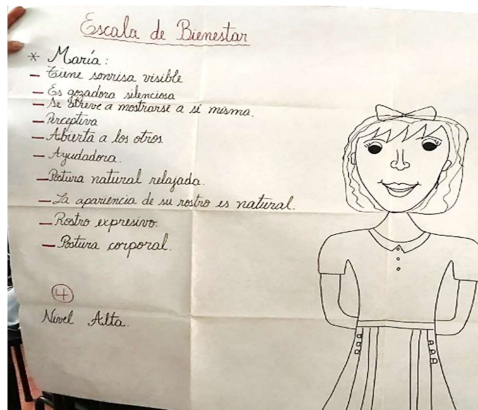 Escala de Bienestar
* María:
— Tiene sonrisa visible
— Es gozadora silenciosa
— Se atreve a mostrarse a sí misma.
— Perceptiva
— Abierta a los otros
— Ayudadora.
— Postura natural relajada.
— La apariencia de su rostro es natural.
— Rostro expresivo.
— Postura corporal.
4
Nivel Alta.